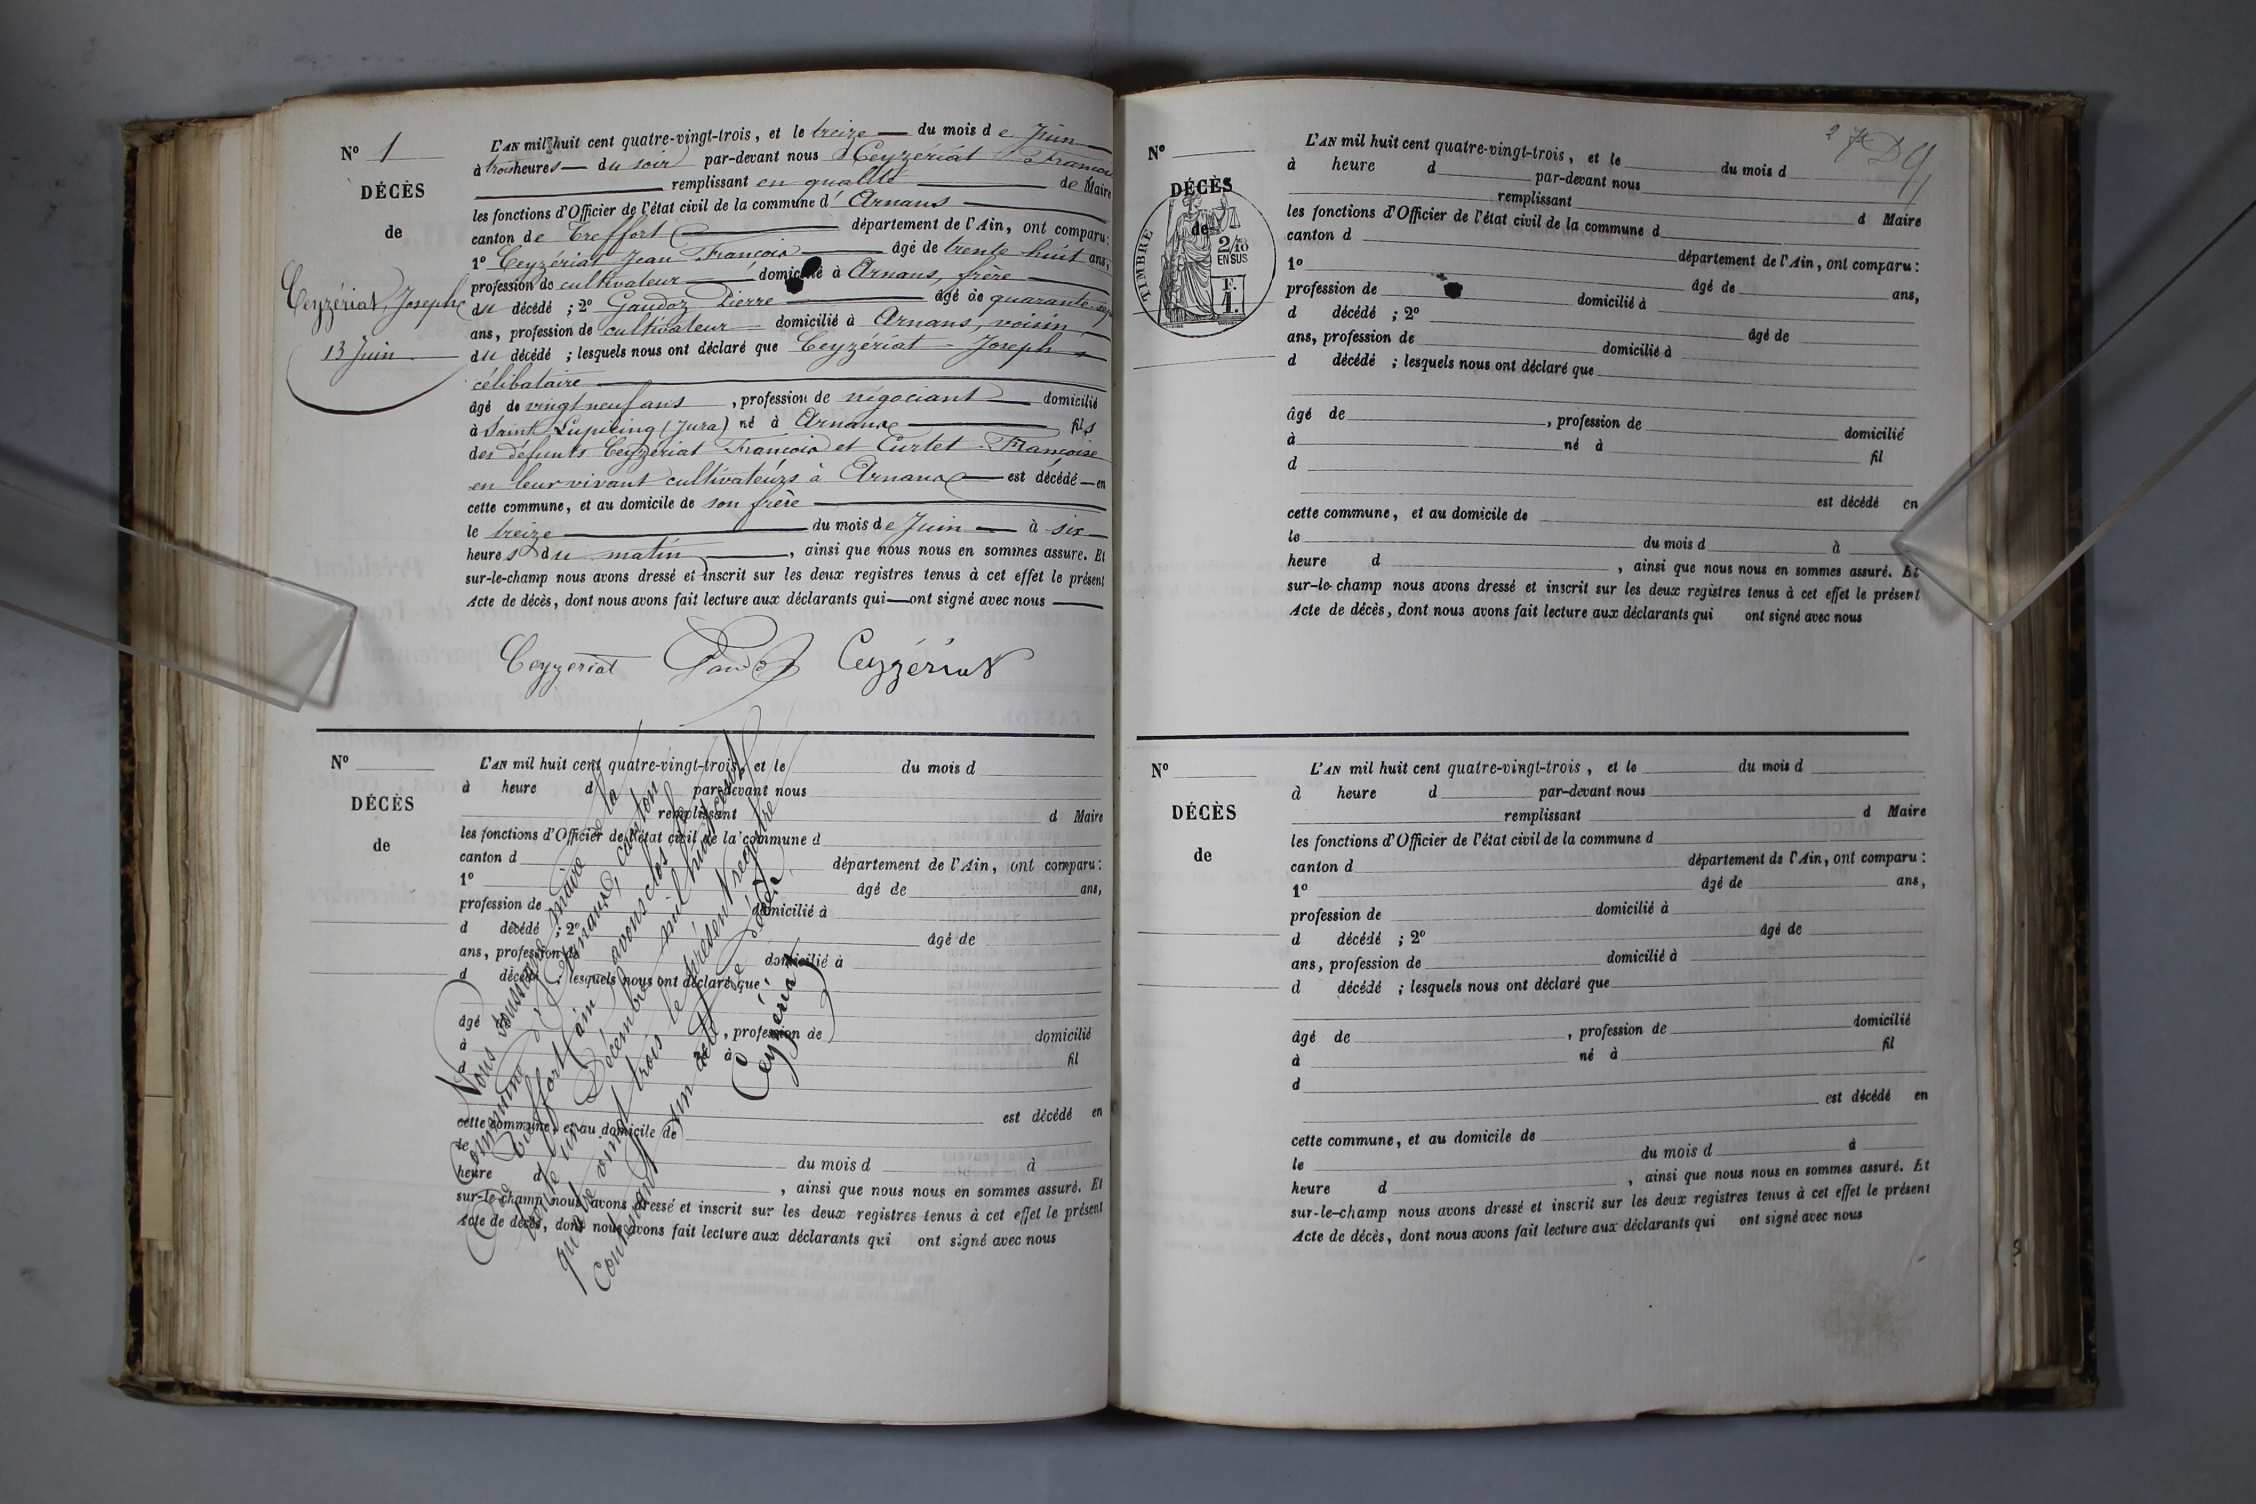 N° 1
DÉCÈS
de
Ceyzériat Joseph
13 Juin
L'AN mil huit cent quatre-vingt-trois, et le treize du mois de Juin
à trois heures du soir par-devant nous Ceyzériat François
remplissant en qualité de Maire
les fonctions d'Officier de l'état civil de la commune d'Arnans
canton de Treffort département de l'Ain, ont comparu :
1° Ceyzériat Jean François âgé de trente huit ans,
profession de cultivateur domicilié à Arnans, frère
du décédé ; 2° Gaudoz Pierre âgé de quarante
ans, profession de cultivateur domicilié à Arnans, voisin
du décédé ; lesquels nous ont déclaré que Ceyzériat Joseph
célibataire
âgé de vingt neuf ans, profession de négociant domicilié
à Saint Lupicing (Jura) né à Arnans fils
des défunts Ceyzériat François et Curlet Françoise
en leur vivant cultivateurs à Arnans est décédé en
cette commune, et au domicile de son frère
le treize du mois de Juin à six
heures du matin, ainsi que nous nous en sommes assuré. Et
sur-le-champ nous avons dressé et inscrit sur les deux registres tenus à cet effet le présent
Acte de décès, dont nous avons fait lecture aux déclarants qui ont signé avec nous
Ceyzeriat Gaudoz Ceyzériat
N°
DÉCÈS
de
L'AN mil huit cent quatre-vingt-trois, et le du mois d
à heure d par-devant nous
remplissant d Maire
les fonctions d'Officier de l'état civil de la commune d
canton d département de l'Ain, ont comparu :
1° âgé de ans,
profession de domicilié à
d décédé ; 2° âgé de
ans, profession de domicilié à
d décédé ; lesquels nous ont déclaré que
âgé de , profession de domicilié
à né à fil
d
est décédé en
cette commune, et au domicile de
le du mois d à
heure d , ainsi que nous nous en sommes assuré. Et
sur-le-champ nous avons dressé et inscrit sur les deux registres tenus à cet effet le présent
Acte de décès, dont nous avons fait lecture aux déclarants qui ont signé avec nous
Nous soussigné maire de la
commune d'Arnans, canton
de Treffort (ain) avons clos le
trente un Décembre mil huit cent
quatre vingt trois le présent registre
contenant un acte de décès
Ceyzériat
2
N°
DÉCÈS
de
TIMBRE
2/10
EN SUS
F.
1.
L'AN mil huit cent quatre-vingt-trois, et le du mois d
à heure d par-devant nous
remplissant d Maire
les fonctions d'Officier de l'état civil de la commune d
canton d département de l'Ain, ont comparu :
1° âgé de ans,
profession de domicilié à
d décédé ; 2° âgé de
ans, profession de domicilié à
d décédé ; lesquels nous ont déclaré que
âgé de , profession de domicilié
à né à fil
d
est décédé en
cette commune, et au domicile de
le du mois d à
heure d , ainsi que nous nous en sommes assuré. Et
sur-le-champ nous avons dressé et inscrit sur les deux registres tenus à cet effet le présent
Acte de décès, dont nous avons fait lecture aux déclarants qui ont signé avec nous
N°
DÉCÈS
de
L'AN mil huit cent quatre-vingt-trois, et le du mois d
à heure d par-devant nous
remplissant d Maire
les fonctions d'Officier de l'état civil de la commune d
canton d département de l'Ain, ont comparu :
1° âgé de ans,
profession de domicilié à
d décédé ; 2° âgé de
ans, profession de domicilié à
d décédé ; lesquels nous ont déclaré que
âgé de , profession de domicilié
à né à fil
d
est décédé en
cette commune, et au domicile de
le du mois d à
heure d , ainsi que nous nous en sommes assuré. Et
sur-le-champ nous avons dressé et inscrit sur les deux registres tenus à cet effet le présent
Acte de décès, dont nous avons fait lecture aux déclarants qui ont signé avec nous